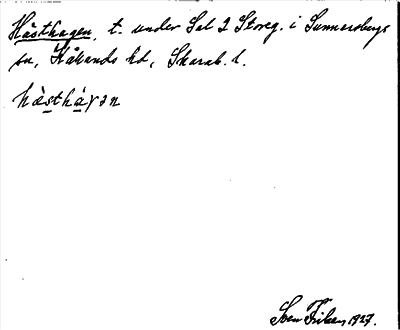 Hästhagen, t. under Sal 2 Storeg. i Sunnersbergs
sn, Kållands hd, Skarab. l.
hà̱sthá̱γən
Sven Ericson 1927.